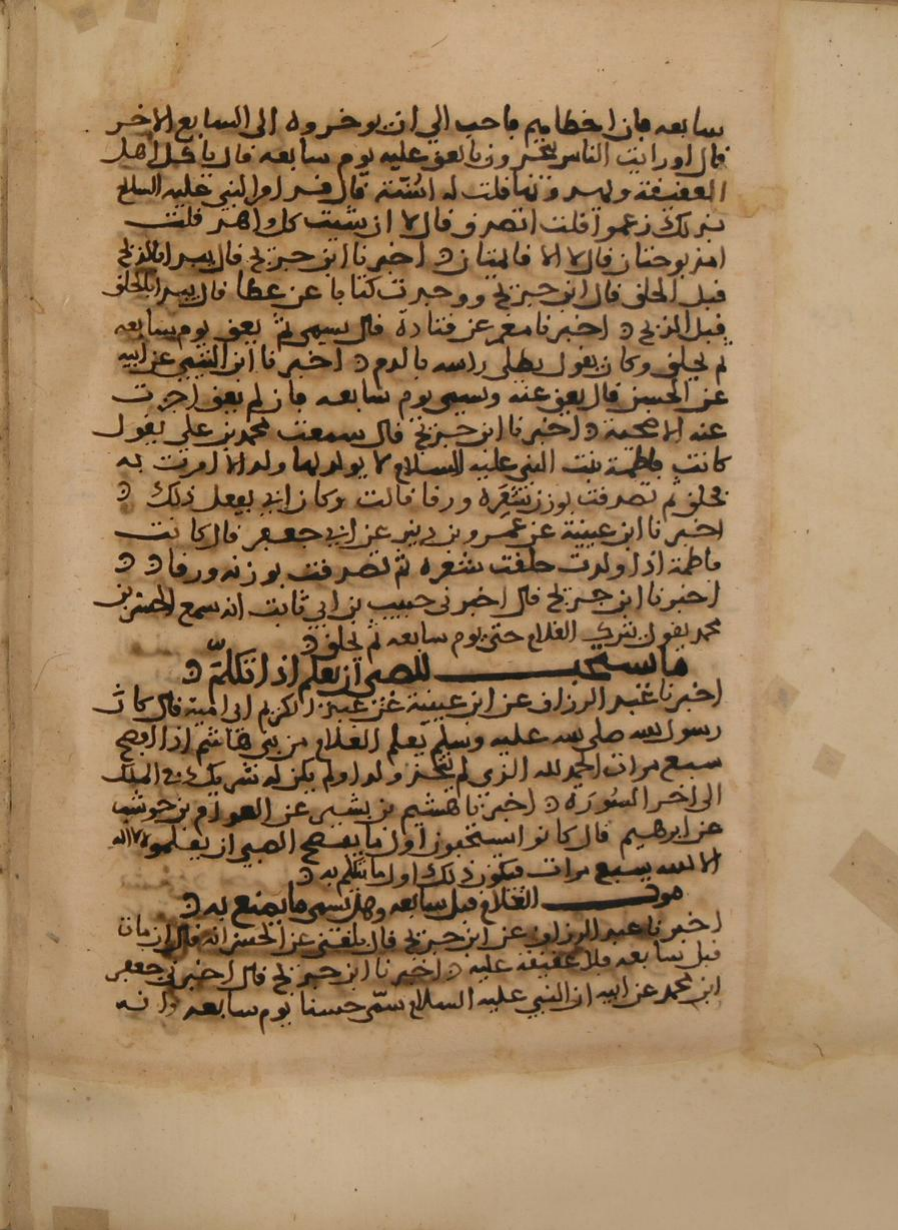 سابعه فان اخطاهم فاحب الي ان يوخروه الى السابع الاخر
قال اورايت الناس يتحرون بالعق عليه يوم سابعه قال ياكل اهل
العقيقة ويهدونها قلت له اسنة قال قد امر النبي عليه السلام
بذلك زعموا قلت اتصدق قال لا ان شيت كل واهد قلت
امذبوحتان قال لا الا قايمتان اخبرنا ابن جريج قال يبدا بالذبح
قبل الحلق قال ابن جريج ووجدت كتابا عن عطا قال يبدا بالحلق
قبل الذبح اخبرنا معمر عن قتادة قال يسمى ثم يعق يوم سابعه
ثم يحلق وكان يقول يطلى راسه بالدم اخبرنا ابن التيمي عن ابيه
عن الحسن قال يعق عنه ويسمى يوم سابعه فان لم يعق اجزت
عنه الاضحية اخبرنا ابن جريج قال سمعت محمد بن علي يقول
كانت فاطمة بنت النبي عليه السلام لا يولد لها ولد الا امرت به
فحلق ثم تصدقت بوزن شعره ورقا قالت وكان ابي يفعل ذلك
اخبرنا ابن عيينة عن عمرو بن دينر عن ابي جعفر قال كانت
فاطمة اذا ولدت حلقت شعره ثم تصدقت بوزنه ورقا
اخبرنا ابن جريج قال اخبرني حبيب بن ابي ثابت انه سمع الحسن بن
محمد يقول يترك الغلام حتى يوم سابعه ثم يحلق
ما يستحب للصبي ان يعلم اذا تكلم
اخبرنا عبد الرزاق عن ابن عيينة عن عبد الكريم ابي امية قال كان
رسول الله صلى الله عليه وسلم يعلم الغلام من بني هاشم اذا افصح
سبع مرات الحمد لله الذي لم يتخذ ولدا ولم يكن له شريك في الملك
الى اخر السورة اخبرنا هشيم بن بشير عن العوام بن حوشب
عن ابرهيم قال كانوا يستحبون اول ما يفصح الصبي ان يعلموه لا اله
الا الله سبع مرات فيكون ذلك اول ما تكلم به
موت الغلام قبل سابعه وهل يسمى وما يصنع به
اخبرنا عبد الرزاق عن ابن جريج قال بلغني عن الحسن انه قال ان مات
قبل سابعه فلا عقيقة عليه اخبرنا ابن جريج قال اخبرني جعفر
ابن محمد عن ابيه ان النبي عليه السلام سمى حسنا يوم سابعه وانه